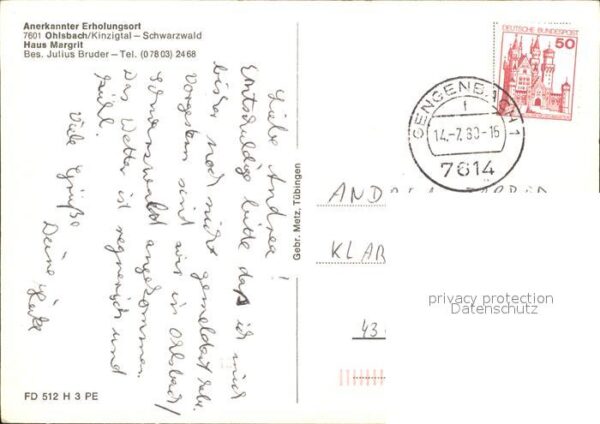 Anerkannter Erholungsort
7601 Ohlsbach/Kinzigtal – Schwarzwald
Haus Margrit
Bes. Julius Bruder – Tel. (0 78 03) 24 68
Liebe Andrea!
Entschuldige bitte daß ich mich
bisher noch nicht gemeldet habe.
Vorgestern sind wir in Ohlsbach/
Schwarzwald angekommen.
Das Wetter ist regnerisch und
kühl.
Viele Grüße
Deine
FD 512 H 3 PE
Gebr. Metz, Tübingen
DEUTSCHE BUNDESPOST
50
GENGENB
1
14.-7.80-16
7614
KLAR
43
privacy protection
Datenschutz